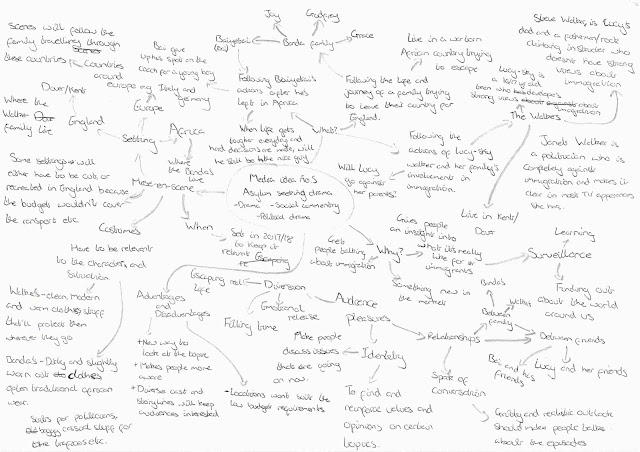 Media idea No5
Asylum seeking drama
-Drama -Social commentary
-Political drama
Scenes will follow the
family travelling through
these countries
Countries
around
europe eg Italy and
Germany
Bai give
up his spot on the
coach for a young boy
Europe
Dover/Kent
England
Where the
Walker
family live
Setting
Africa
where
the Banda's
live
Mise-en-scene
Some settings will
either have to be cut or
recreated in England because
the budgets wouldn't cover
the transport etc.
Costumes
Have to be relevant
to the characters and
situation
Walker's-clean, modern
and warm clothes stuff
that'll protect them
wherever they go
Banda's - Dirty and slightly
worn out clothes
often traditional african
wear.
Suits for politicians,
baggy casual stuff for
the traffickers etc.
When
Set in 2017/18
to keep it
relevant
Jay
Godfrey
Grace
Banda family
Following
actions after he's
left in Africa
When life gets
tougher everyday and
hard decisions are made, will
he still be the nice guy
What?
Live in a war torn
African country trying
to escape
Following the life and
journey of a family trying
to leave their country for
England.
Steve Walker is Lucy's
dad and a fisherman/rock
climbing instructor who
doesn't have strong
views about
immigration
Lucy-Sky is
a 16 yr old
teen who has
strong views about
immigration
The Walkers
Following the
actions of Lucy-Sky
Walker and her family's
involvements in
immigration.
Will Lucy
go against
her parents?
Janet Walker is
a politician who is
completely against
immigration and makes it
clear in most TV appearances
she has.
Live in Kent/
Dover
Why?
Gets
people talking
about immigration
Gives people
an insight into
what it's really
like for
immigrants
Something new in
the market
Audience
pleasures
Surveillance
Learning
Finding out
about the world
around us
Relationships
Between
family
Banda's
Walkers
Between friends
Bai and his
friends
Lucy and her friends
Spark of
conversation
Gritty and realistic outlook
should make people talk
about the episodes
Identity
Make people
discuss issues
that are going
on now.
To find and
reinforce values and
opinions on certain
topics.
Diversion
Escaping real
life
Filling time
Emotional
release
Advantages
and
Disadvantages
+New way to
look at the topic
+Makes people more
aware
+Diverse cast and
storylines will keep
audiences interested
-Locations won't suit the
low budget requirements